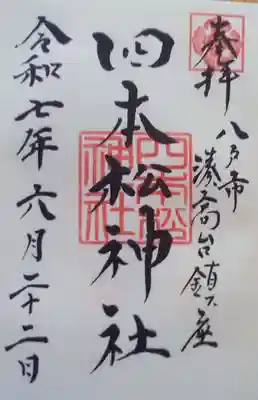 奉拝
八戸市
湊高台鎮座
四本松神社
四本松
神社
令和七年六月二十二日